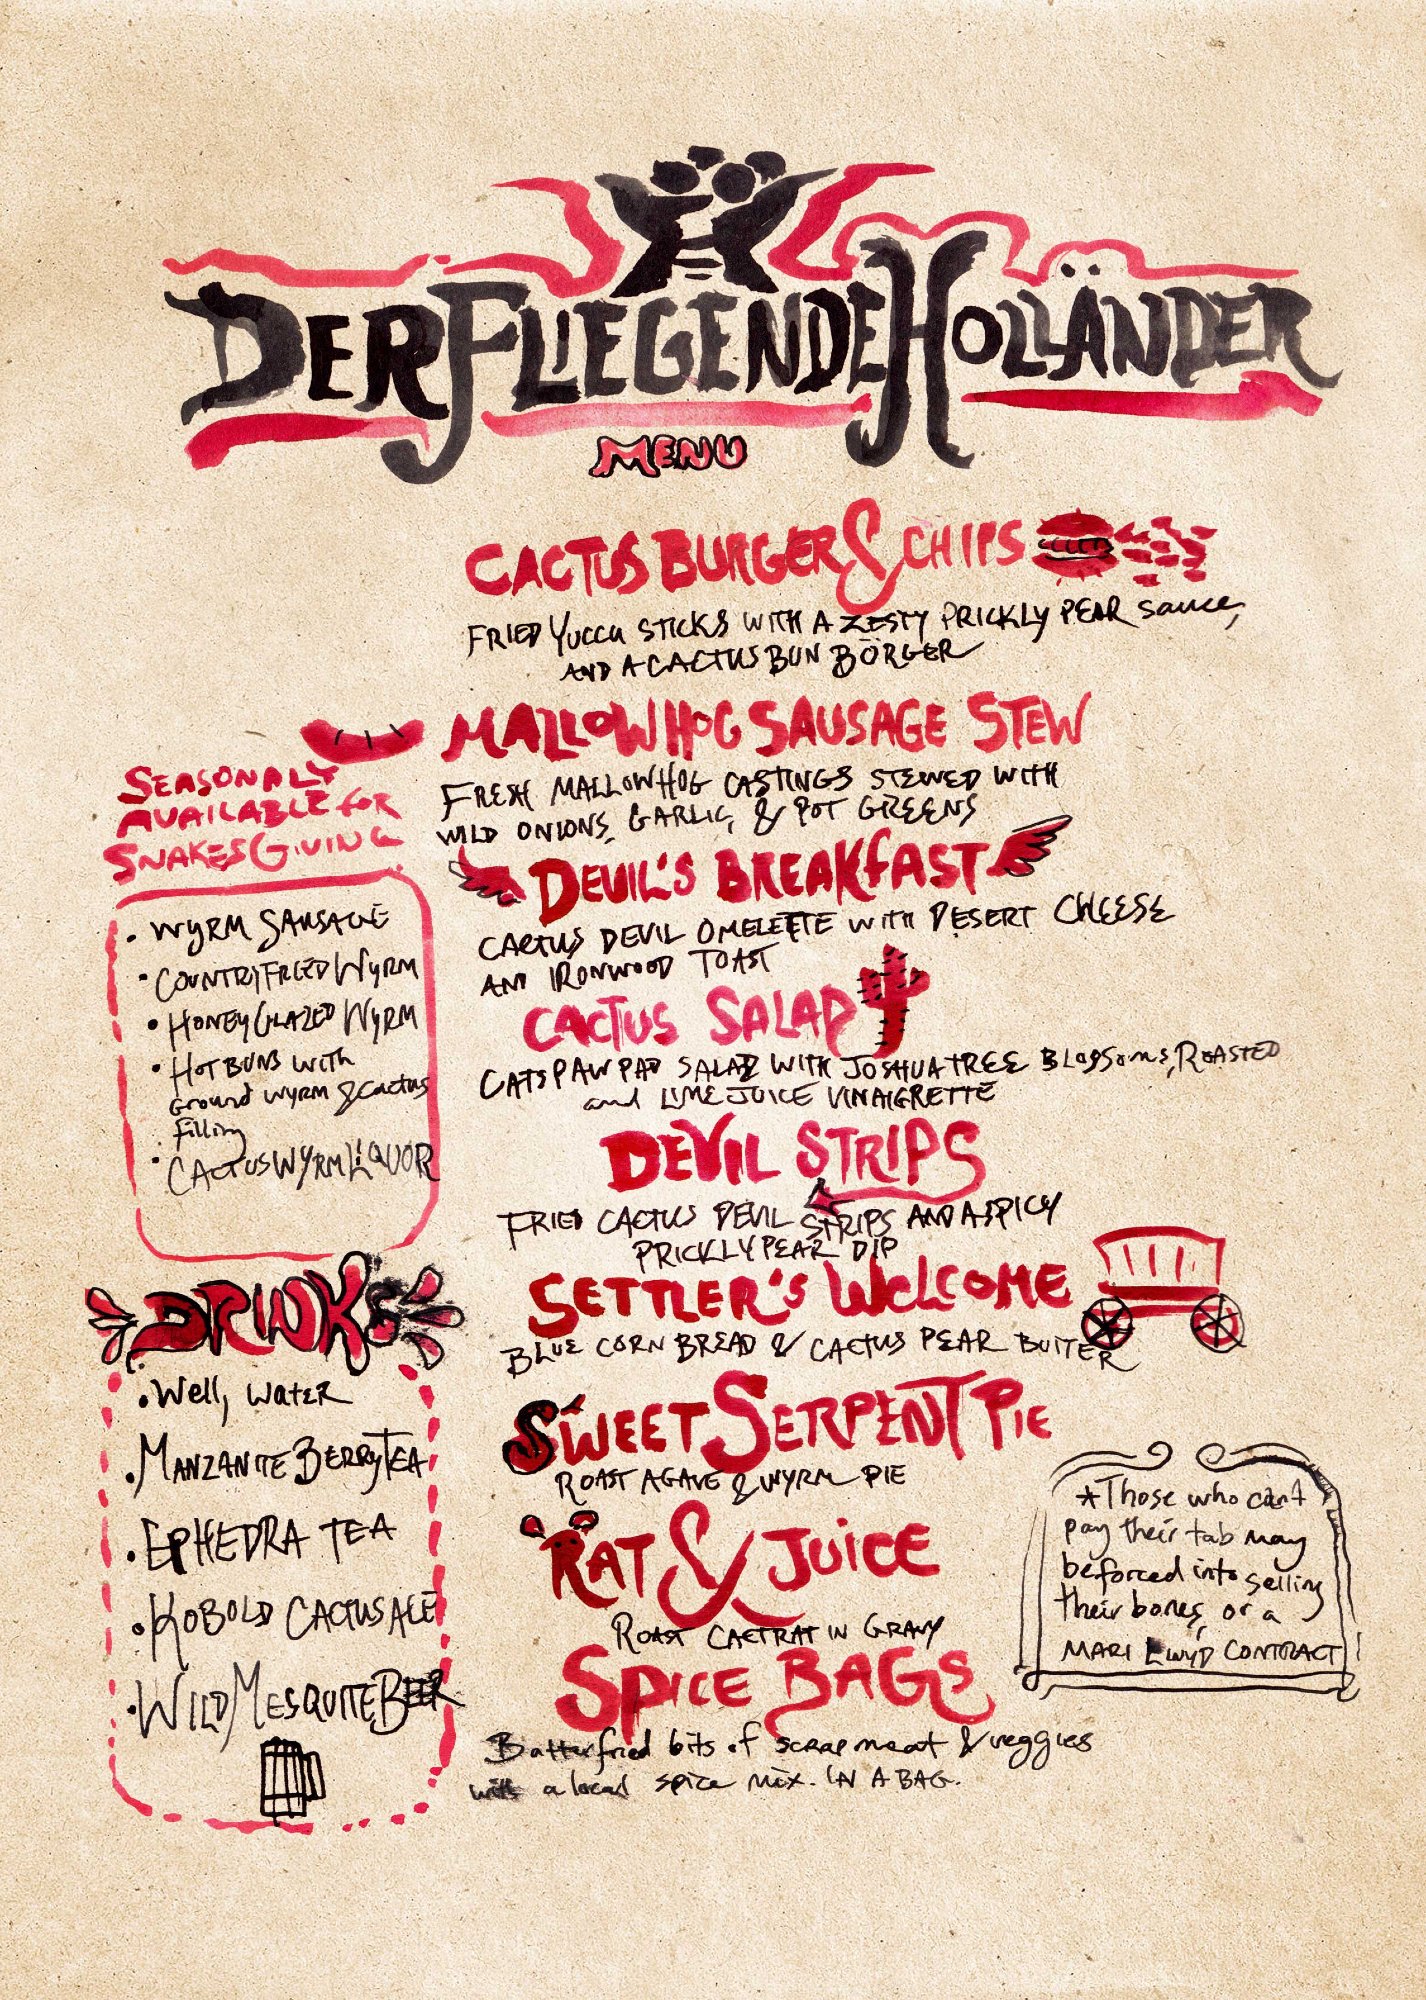 DER FLIEGENDE HOLLÄNDER
MENU
CACTUS BURGER & CHIPS
FRIED YUCCA STICKS WITH A ZESTY PRICKLY PEAR SAUCE,
AND A CACTUS BUN BÖRGER
MALLOWHOG SAUSAGE STEW
FRESH MALLOWHOG CASTINGS STEWED WITH
WILD ONIONS, GARLIC, & POT GREENS
DEVIL'S BREAKFAST
CACTUS DEVIL OMELETTE WITH DESERT CHEESE
AND IRONWOOD TOAST
CACTUS SALAD
CATSPAW PAD SALAD WITH JOSHUA TREE BLOSSOMS, ROASTED
and LIME JUICE VINAIGRETTE
DEVIL STRIPS
FRIED CACTUS DEVIL STRIPS AND A SPICY
PRICKLY PEAR DIP
SETTLER'S WELCOME
BLUE CORN BREAD & CACTUS PEAR BUTTER
SWEET SERPENT PIE
ROAST AGAVE & WYRM PIE
RAT & JUICE
ROAST CACTRAT IN GRAVY
SPICE BAGS
Batter fried bits of scrap meat & veggies
with a local spice mix. IN A BAG.
SEASONALY
AVAILABLE FOR
SNAKESGIVING
• WYRM SAUSAGE
• COUNTRY FRIED WYRM
• HONEY GLAZED WYRM
• HOT BUNS WITH
Ground wyrm & cactus
filling
• CACTUS WYRM LIQUOR
DRINKS
• Well, water
• MANZANITE BERRY TEA
• EPHEDRA TEA
• KOBOLD CACTUS ALE
• WILD MESQUITE BEER
*Those who can't
pay their tab may
be forced into selling
their bones, or a
MARI LWYD CONTRACT!